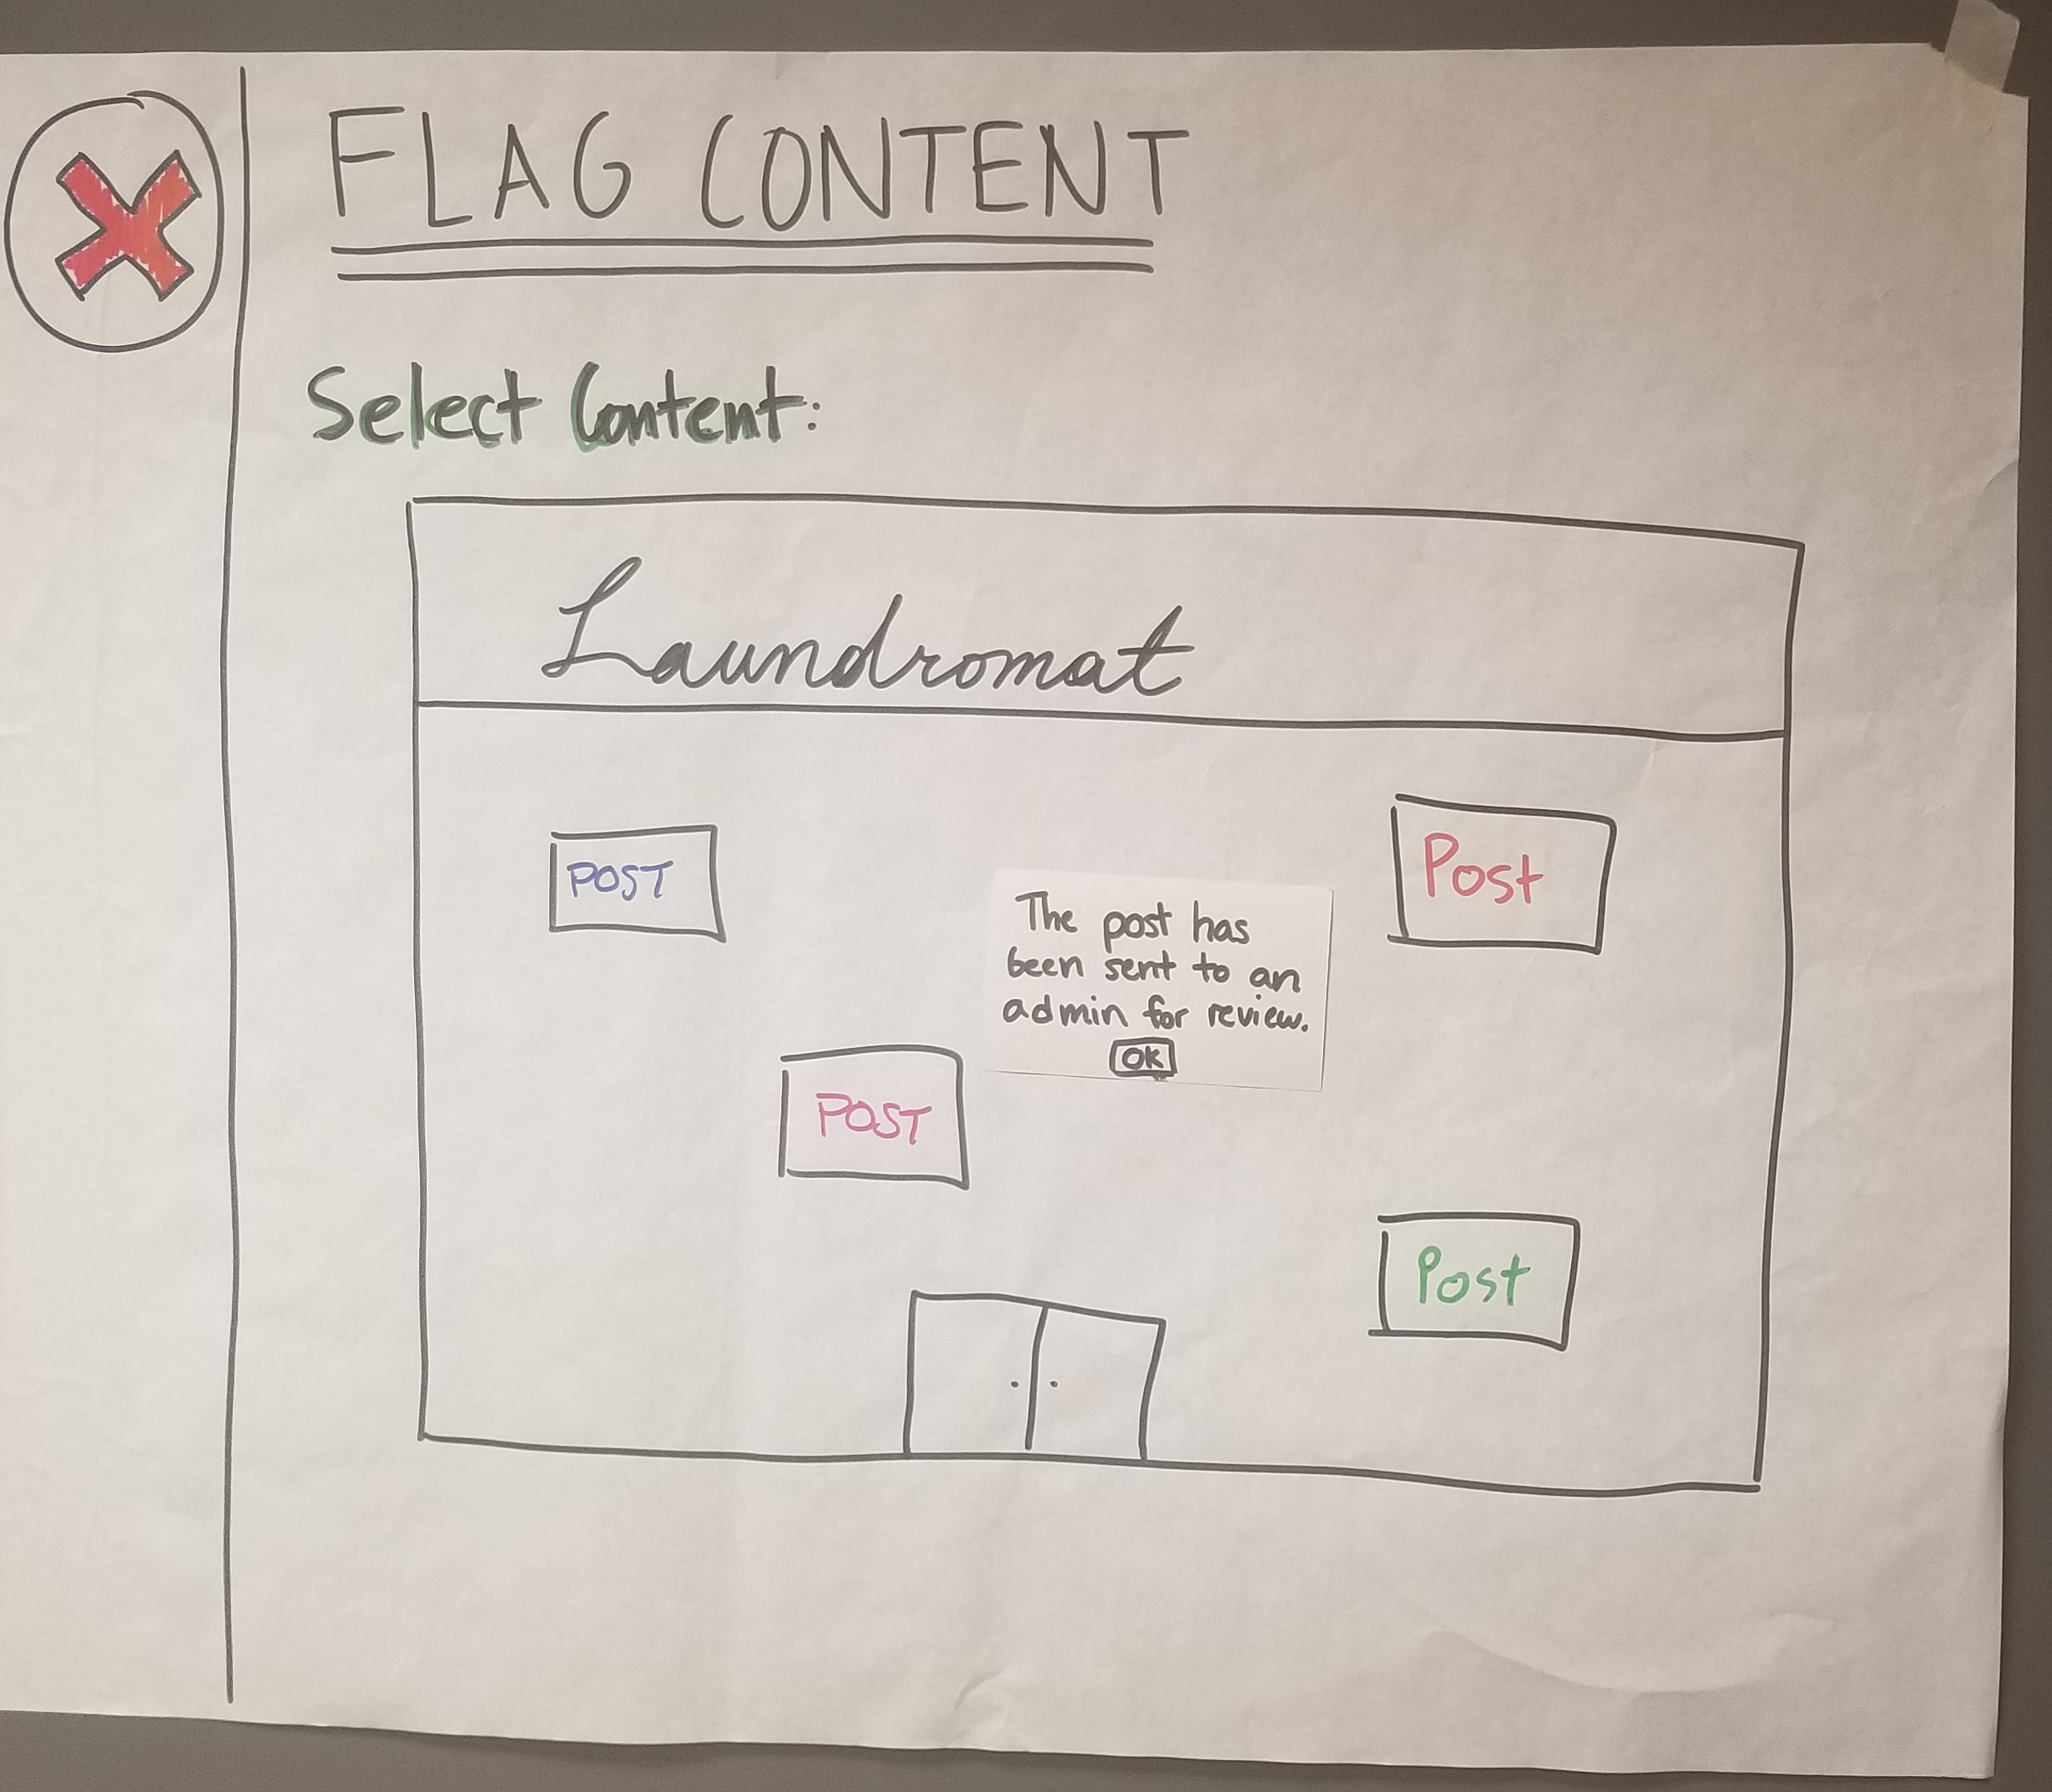 FLAG CONTENT
Select Content:
Laundromat
POST
Post
The post has
been sent to an
admin for review.
OK
POST
Post